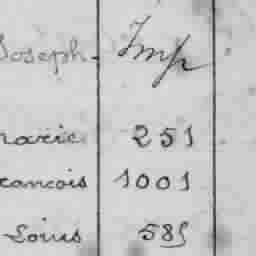 Joseph. Imp
marie 251
rancois 1001
Louis 585